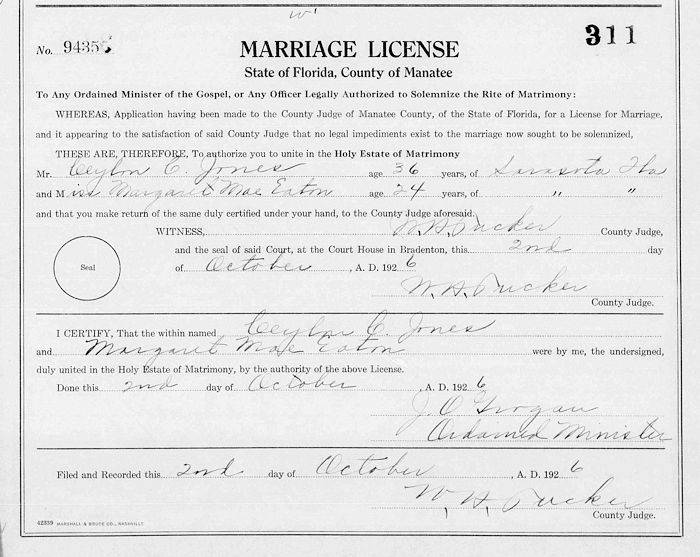 No. 9435
311
MARRIAGE LICENSE
State of Florida, County of Manatee
To Any Ordained Minister of the Gospel, or Any Officer Legally Authorized to Solemnize the Rite of Matrimony:
WHEREAS, Application having been made to the County Judge of Manatee County, of the State of Florida, for a License for Marriage,
and it appearing to the satisfaction of said County Judge that no legal impediments exist to the marriage now sought to be solemnized,
THESE ARE, THEREFORE, To authorize you to unite in the Holy Estate of Matrimony
Mr. Ceylon C. Jones age 36 years, of Sarasota Fla
and Miss Margaret Mae Eaton age 24 years, of " "
and that you make return of the same duly certified under your hand, to the County Judge aforesaid.
WITNESS, W.H. Tucker County Judge,
and the seal of said Court, at the Court House in Bradenton, this 2nd day
Seal
of October, A. D. 1926
W. H. Tucker
County Judge.
I CERTIFY, That the within named Ceylon C. Jones
and Margaret Mae Eaton were by me, the undersigned,
duly united in the Holy Estate of Matrimony, by the authority of the above License.
Done this 2nd day of October, A. D. 1926
J. O Grogan
Ordained Minister
Filed and Recorded this 2nd day of October, A. D. 1926
W. H. Tucker
County Judge.
42339 MARSHALL & BRUCE CO., NASHVILLE